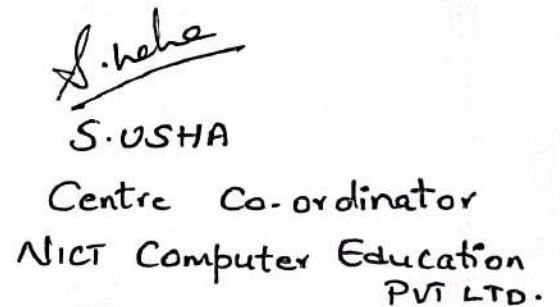 S. Usha
S. USHA
Centre Co-ordinator
NICT Computer Education
PVT LTD.